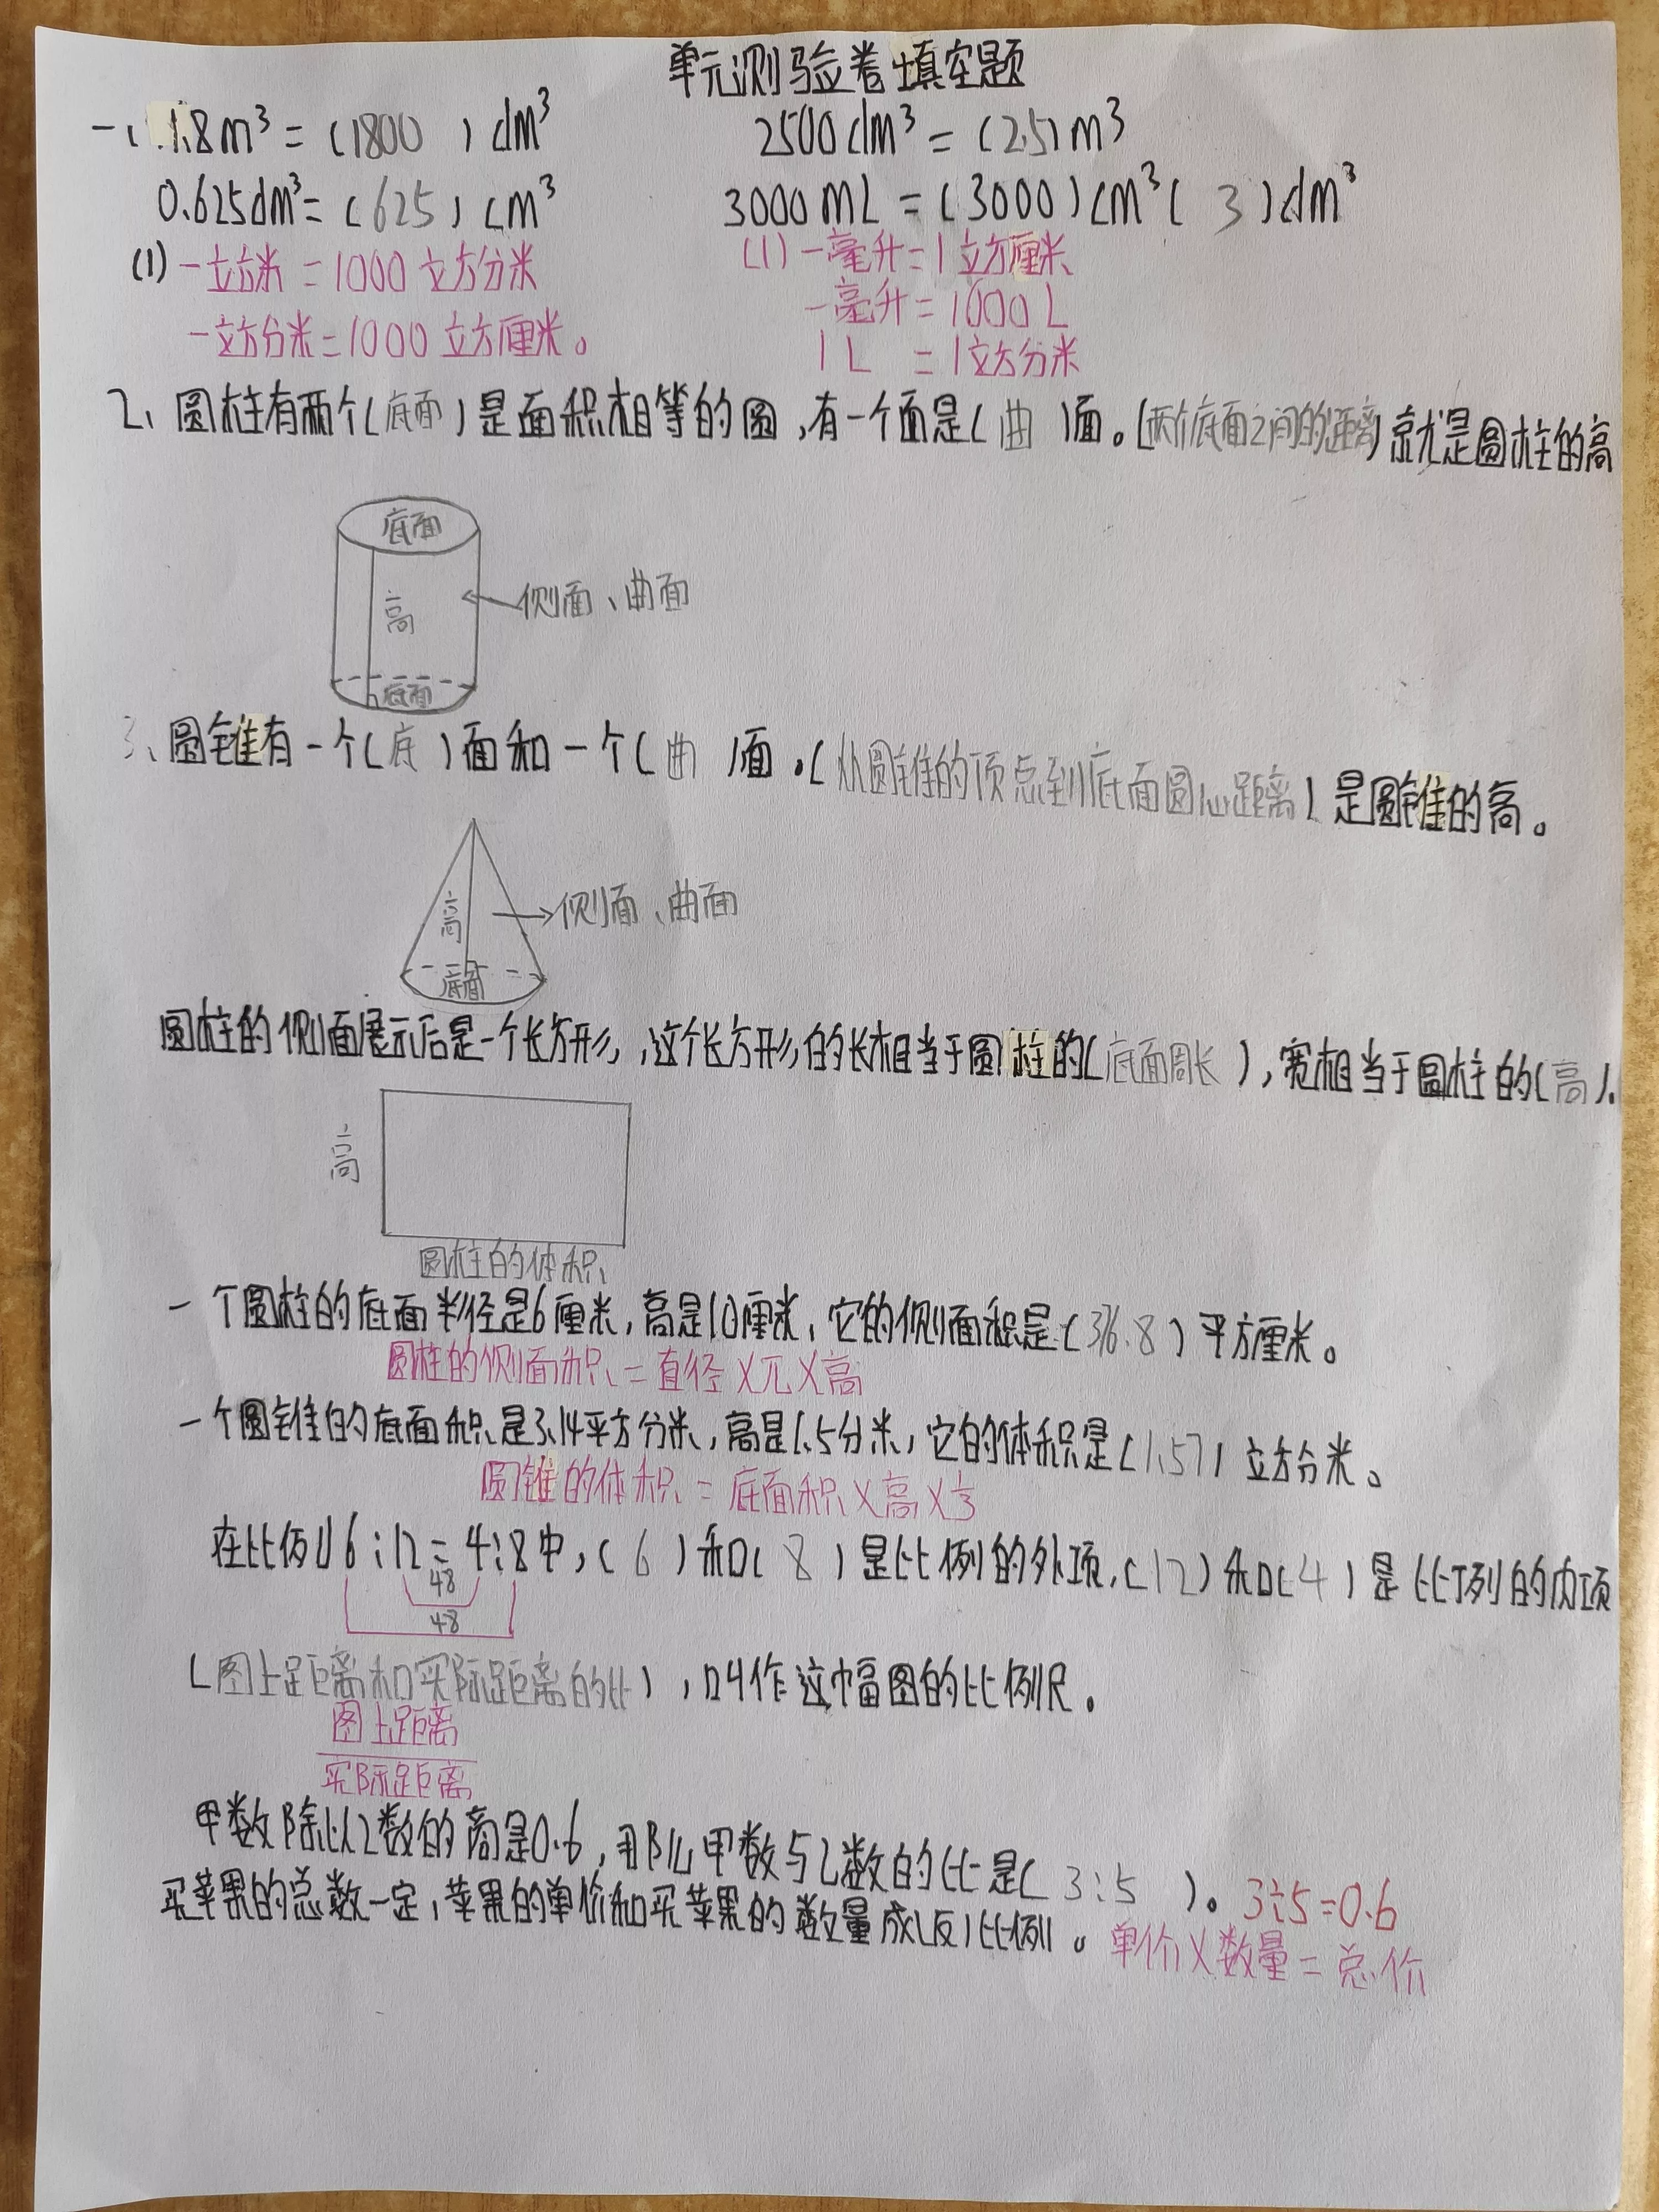 单元测验卷填空题
一、1.8m³=(1800 )dm³ 2500dm³=(2.5)m³
0.625dm³=(625)cm³ 3000mL=(3000)cm³( 3)dm³
(1)一立方米=1000立方分米 (1)一毫升=1立方厘米
一立方分米=1000立方厘米。 一毫升=1000L
1L =1立方分米
2、圆柱有两个(底面)是面积相等的圆,有一个面是(曲)面。(两个底面之间的距离)就是圆柱的高
底面
高
侧面、曲面
底面
3、圆锥有一个(底)面和一个(曲)面。(从圆锥的顶点到底面圆心距离)是圆锥的高。
高
侧面、曲面
底面
圆柱的侧面展示后是一个长方形,这个长方形的长相当于圆柱的(底面周长),宽相当于圆柱的(高).
高
圆柱的体积
一个圆柱的底面半径是6厘米,高是10厘米,它的侧面积是(376.8)平方厘米。
圆柱的侧面积=直径×兀×高
一个圆锥的底面积是3.14平方分米,高是1.5分米,它的体积是(1.57)立方分米。
圆锥的体积=底面积×高×⅓
在比例6:12=4:8中,(6)和(8)是比例的外项,(12)和(4)是比例的内项
48
48
(图上距离和实际距离的比),叫作这幅图的比例尺。
图上距离
实际距离
甲数除以乙数的商是0.6,那么甲数与乙数的比是(3:5 )。3÷5=0.6
买苹果的总数一定,苹果的单价和买苹果的数量成(反)比例。单价×数量=总价